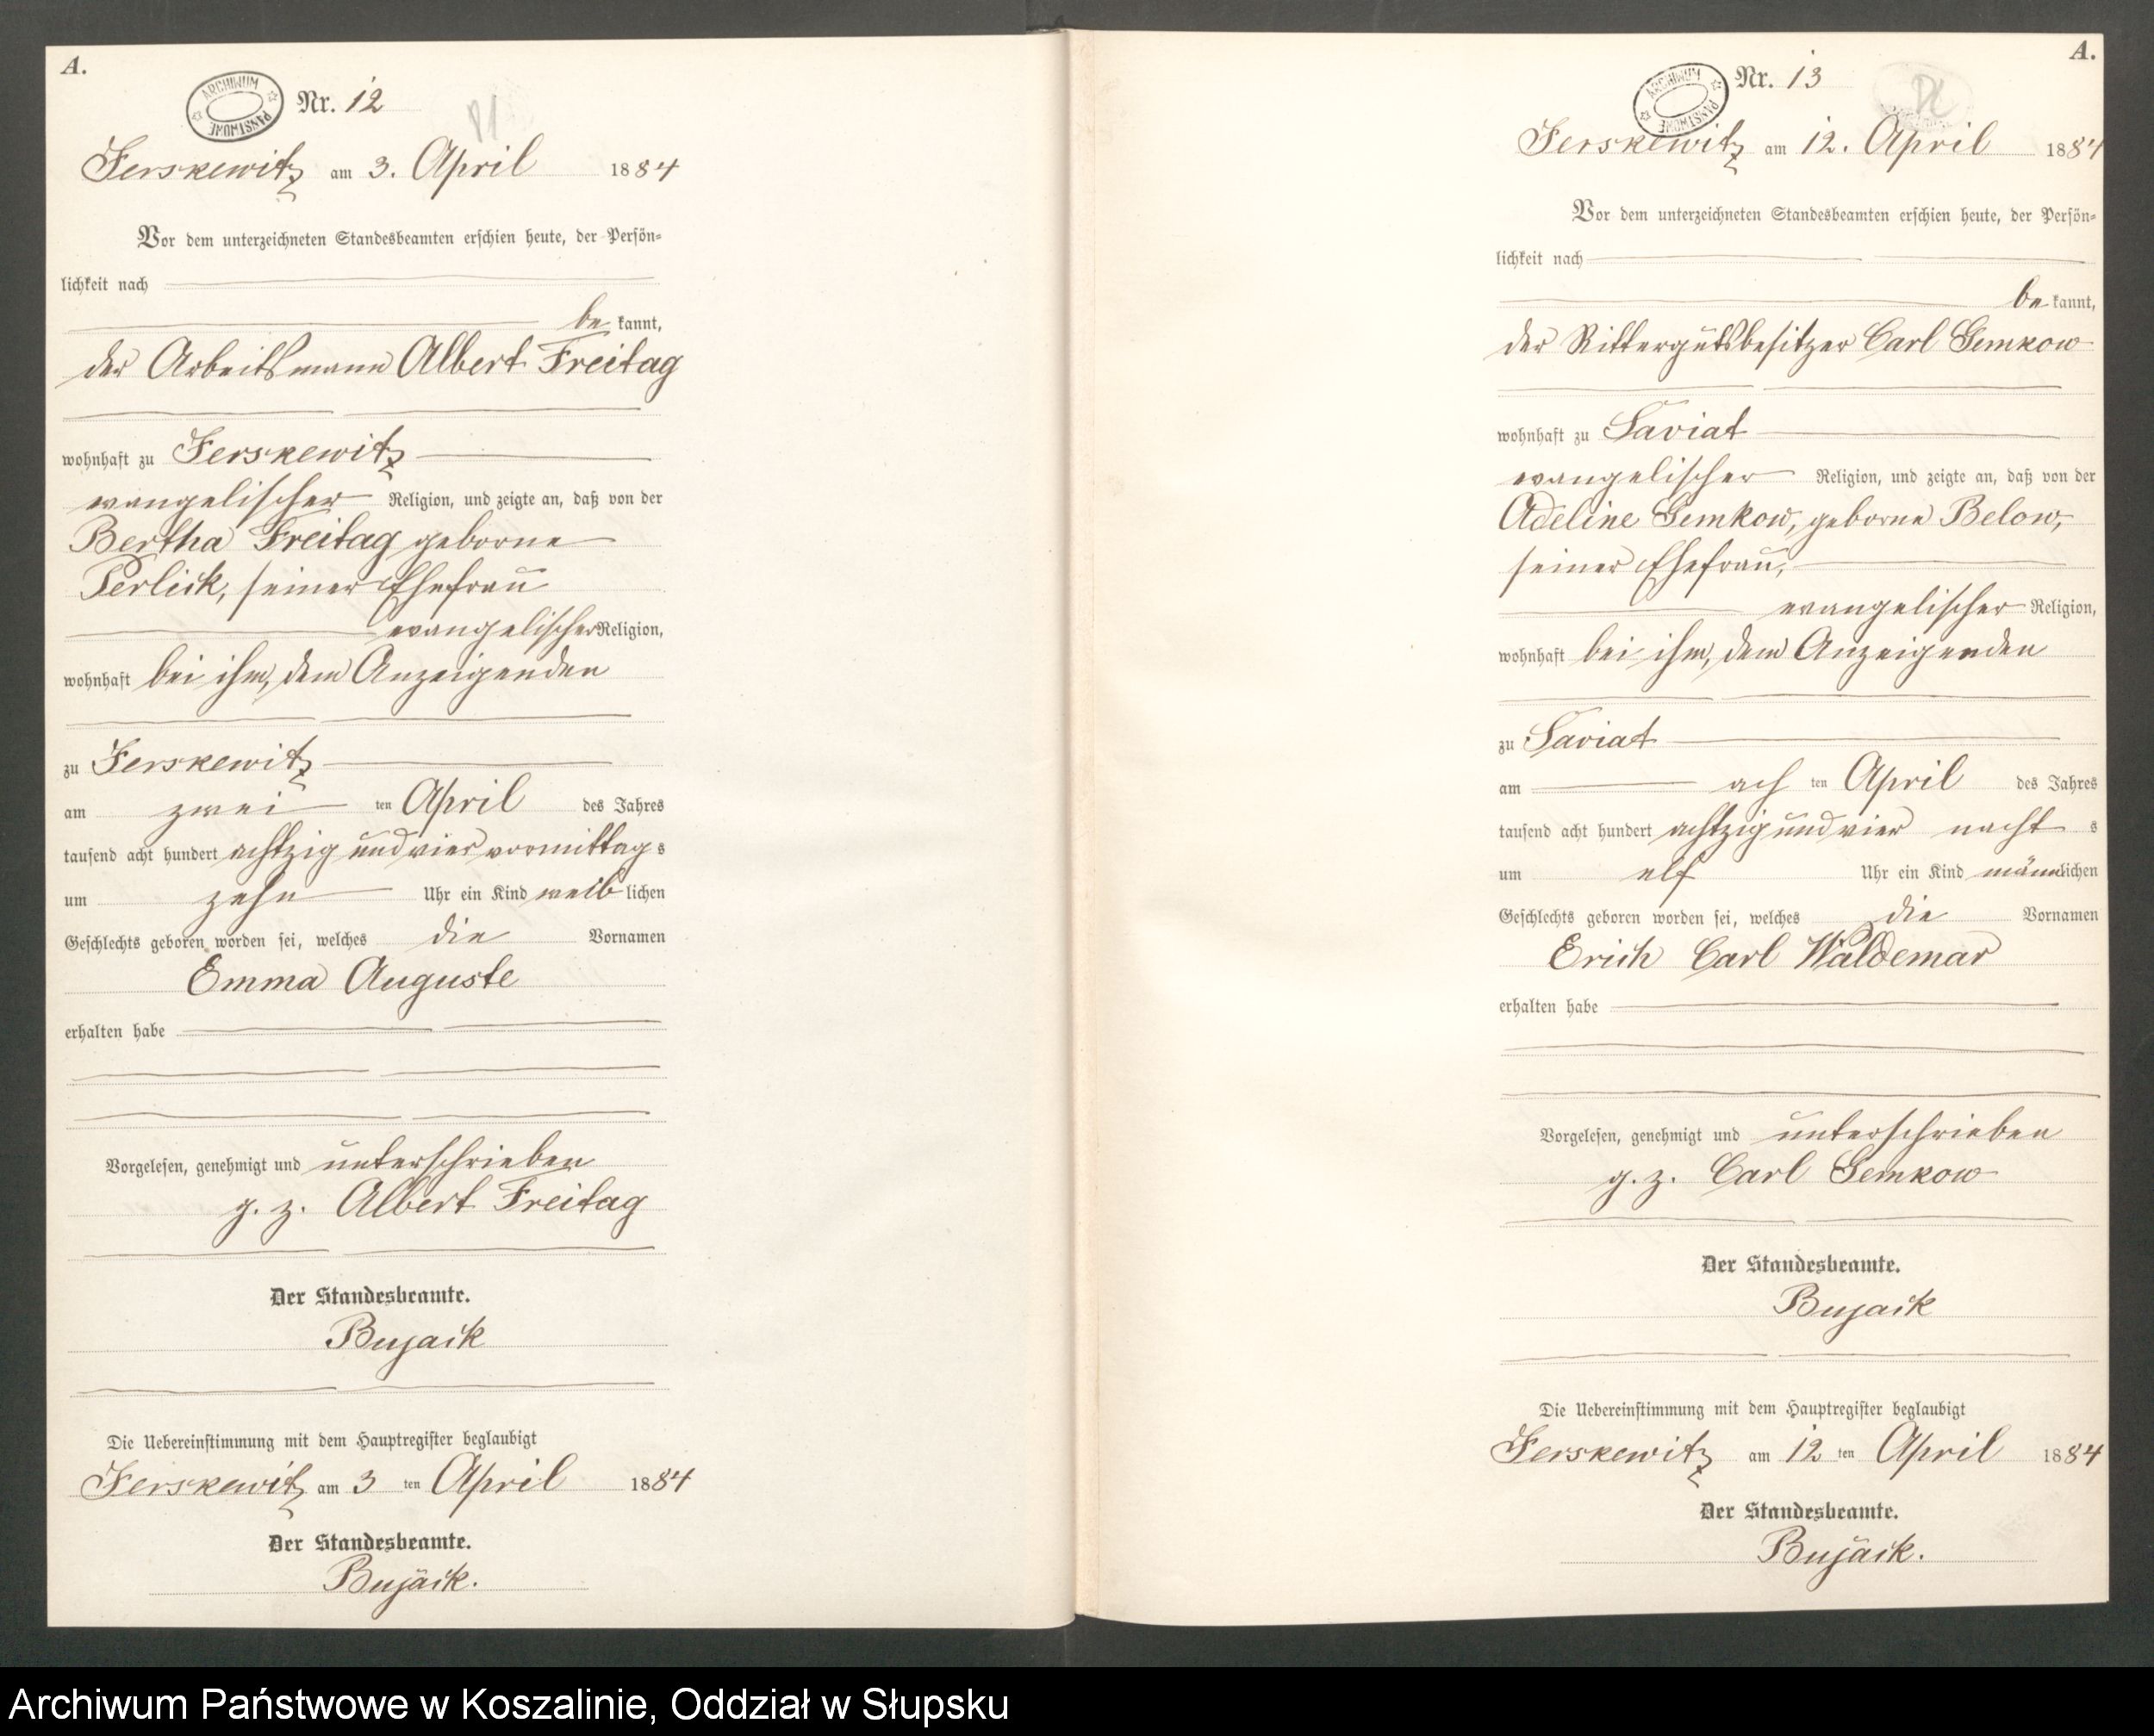 A.
ARCHIWUM PAŃSTWOWE
Nr. 12
Jerskewitz am 3. April 1884
Vor dem unterzeichneten Standesbeamten erschien heute, der Persön-
lichkeit nach
be kannt,
der Arbeitsmann Albert Freitag
wohnhaft zu Jerskewitz
evangelischer Religion, und zeigte an, daß von der
Bertha Freitag geborne
Perlick, seiner Ehefrau
evangelischer Religion,
wohnhaft bei ihm, dem Anzeigenden
zu Jerskewitz
am zwei ten April des Jahres
tausend acht hundert achtzig und vier vormittag s
um zehn Uhr ein Kind weib lichen
Geschlechts geboren worden sei, welches die Vornamen
Emma Auguste
erhalten habe
Vorgelesen, genehmigt und unterschrieben
g. z. Albert Freitag
Der Standesbeamte.
Bujack
Die Uebereinstimmung mit dem Hauptregister beglaubigt
Jerskewitz am 3 ten April 1884
Der Standesbeamte.
Bujack.
A.
ARCHIWUM PAŃSTWOWE
Nr. 13
Jerskewitz am 12. April 1884
Vor dem unterzeichneten Standesbeamten erschien heute, der Persön-
lichkeit nach
be kannt,
der Rittergutsbesitzer Carl Semkow
wohnhaft zu Saviat
evangelischer Religion, und zeigte an, daß von der
Adeline Semkow, geborne Below,
seiner Ehefrau,
evangelischer Religion,
wohnhaft bei ihm, dem Anzeigenden
zu Saviat
am ach ten April des Jahres
tausend acht hundert achtzig und vier nacht s
um elf Uhr ein Kind männlichen
Geschlechts geboren worden sei, welches die Vornamen
Erich Carl Waldemar
erhalten habe
Vorgelesen, genehmigt und unterschrieben
g. z. Carl Semkow
Der Standesbeamte.
Bujack
Die Uebereinstimmung mit dem Hauptregister beglaubigt
Jerskewitz am 12 ten April 1884
Der Standesbeamte.
Bujack.
Archiwum Państwowe w Koszalinie, Oddział w Słupsku